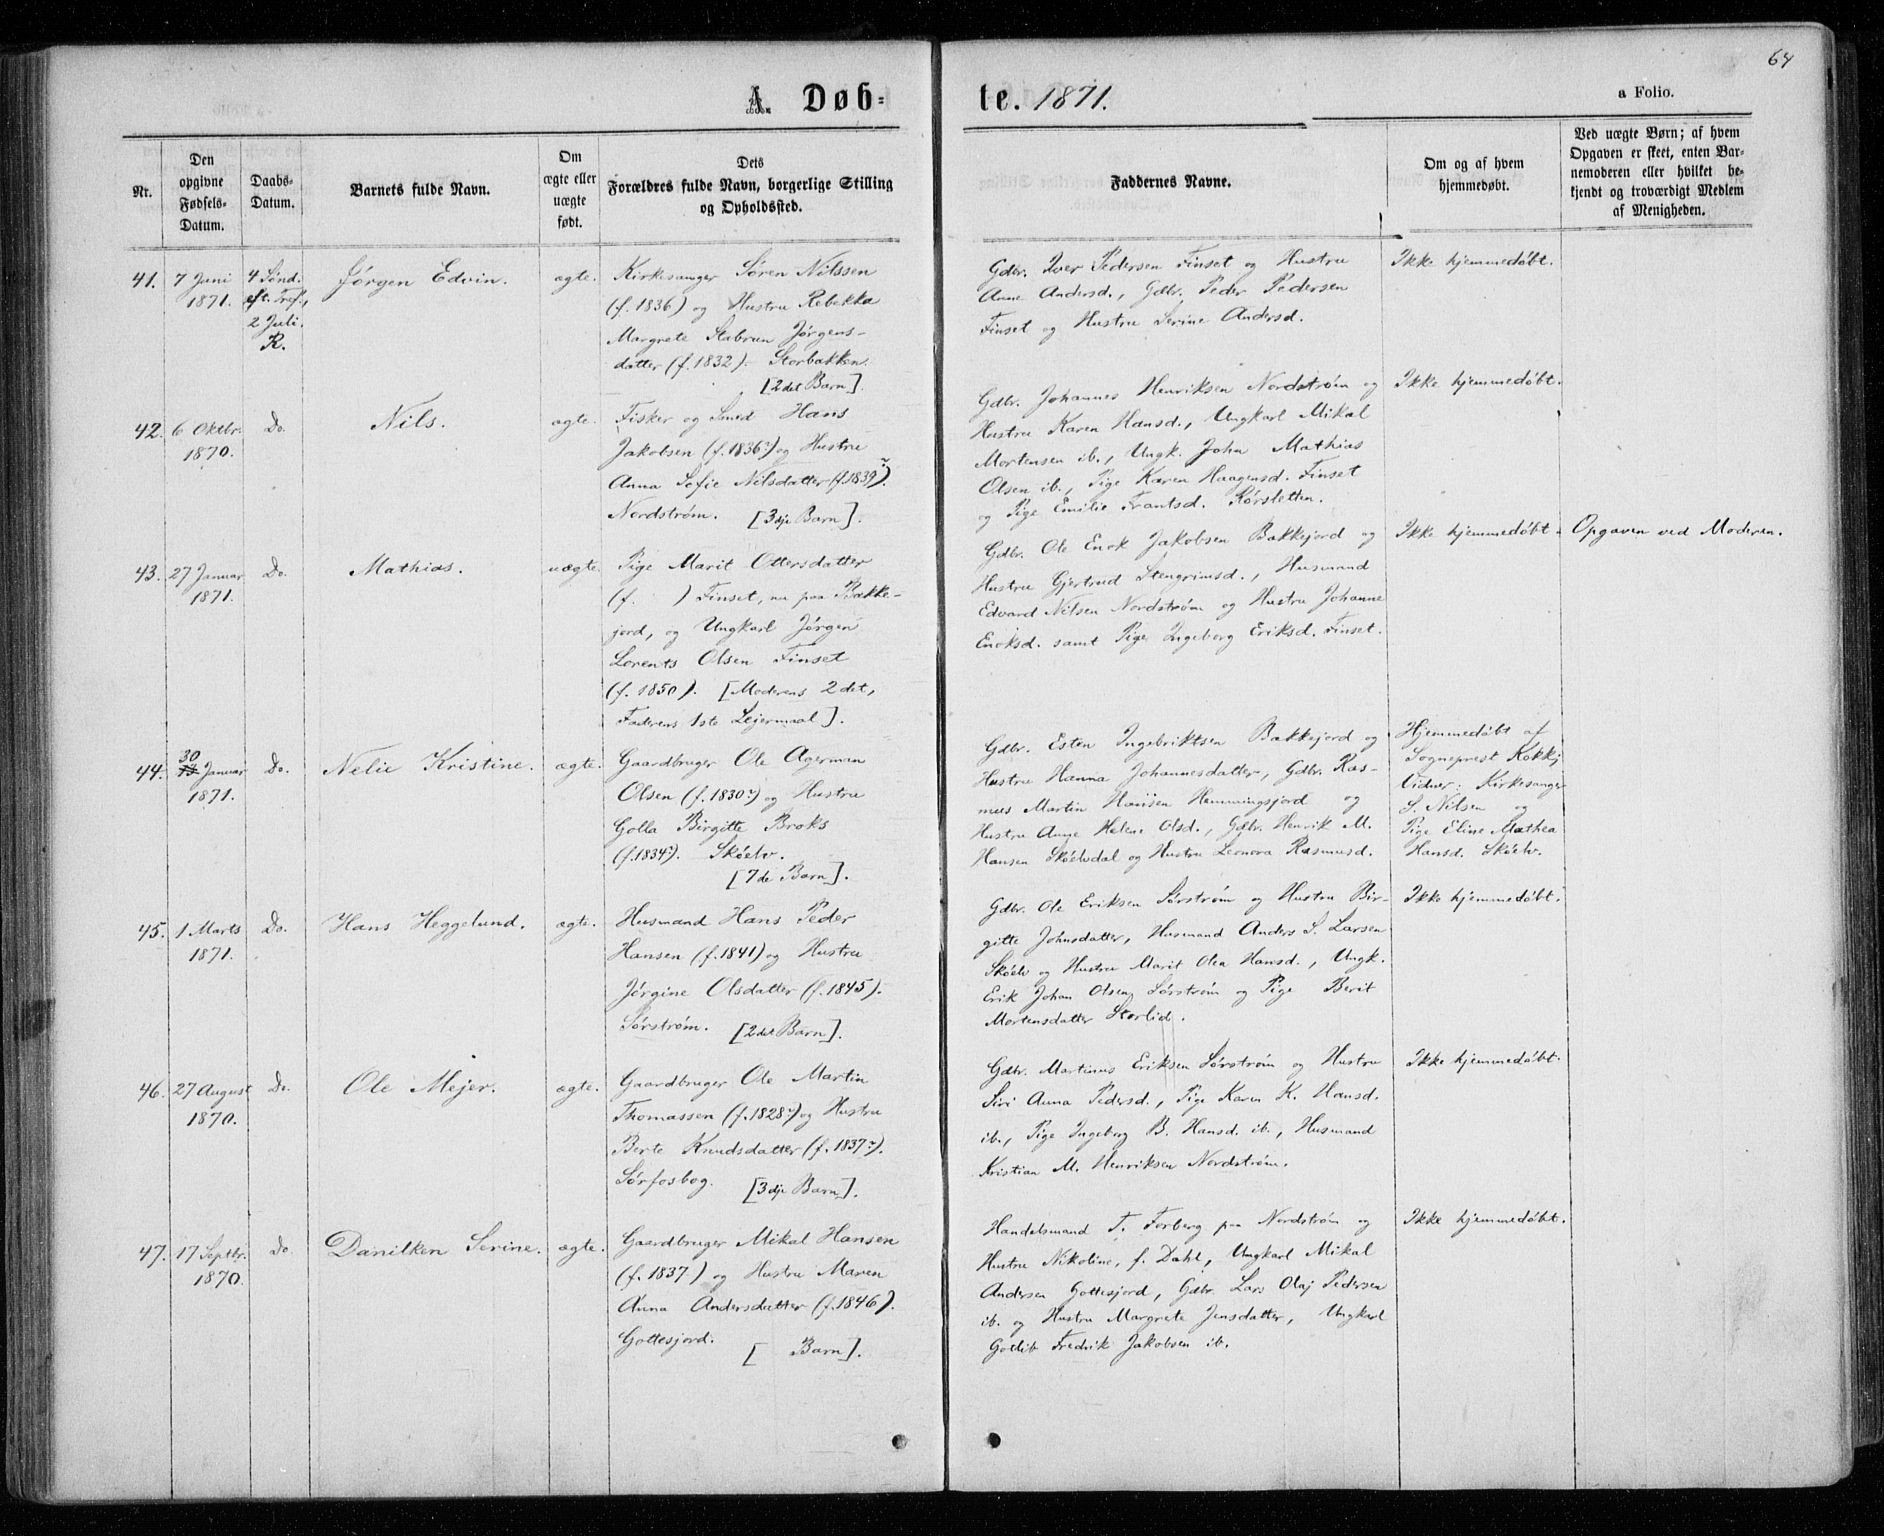 64
A. Døb-
te. 1871.
a Folio.
Nr.
Den
opgivne
Fødsels-
Datum.
Daabs-
Datum.
Barnets fulde Navn.
Om
ægte eller
uægte
født.
Dets
Forældres fulde Navn, borgerlige Stilling
og Opholdssted.
Faddernes Navne.
Om og af hvem
hjemmedøbt.
Ved uægte Børn; af hvem
Opgaven er skeet, enten Bar-
nemoderen eller hvilket be-
kjendt og troværdigt Medlem
af Menigheden.
41.
7 Juni
1871.
4 Sønd.
eft. Tref.,
2 Juli.
K.
Jørgen Edvin.
ægte.
Kirkesanger Søren Nilssen
(f. 1836) og Hustru Rebekka
Margrete Stabrun Jørgens-
datter (f. 1832). Storbakken.
[2det Barn].
Gdbr. Iver Pedersen Finset og Hustru
Anne Andersd., Gdbr. Peder Pedersen
Finset og Hustru Serine Andersd.
Ikke hjemmedøbt.
42.
6 Oktbr.
1870.
Do.
Nils.
ægte.
Fisker og Smed Hans
Jakobsen (f. 1836?) og Hustru
Anna Sofie Nilsdatter (f. 1839?).
Nordstrøm. [3dje Barn].
Gdbr. Johannes Henriksen Nordstrøm og
Hustru Karen Hansd., Ungkarl Mikal
Mortensen ib., Ungk. John Mathias
Olsen ib., Pige Karen Haagensd. Finset
og Pige Emilie Frantsd. Rørsletten.
Ikke hjemmedøbt.
43.
27 Januar
1871.
Do.
Mathias.
uægte.
Pige Marit Ottersdatter
(f. ) Finset, nu paa Bakke-
jord, og Ungkarl Jørgen
Lorents Olsen Finset
(f. 1850). [Moderens 2det,
Faderens 1ste Lejermaal].
Gdbr. Ole Enok Jakobsen Bakkejord og
Hustru Gjertrud Stengrimsd., Husmand
Edvard Nilsen Nordstrøm og Hustru Johanne
Enoksd. samt Pige Ingeborg Eriksd. Finset.
Ikke hjemmedøbt.
Opgaven ved Moderen.
44.
30
Januar
1871.
Do.
Nelie Kristine.
ægte.
Gaardbruger Ole Agerman
Olsen (f. 1830?) og Hustru
Golla Birgitte Broks
(f. 1834?). Skóelv.
[7de Barn].
Gdbr. Esten Ingebriktsen Bakkejord og
Hustru Hanna Johannesdatter, Gdbr. Ras-
mus Martin Hansen Hemmingsjord og
Hustru Anne Helene Olsd., Gdbr. Henrik M.
Hansen Skóelvdal og Hustru Leonora Rasmusd.
Hjemmedøbt af
Sogneprest Kokkj
Vidner: Kirkesanger
S. Nilsen og
Pige Eline Mathea
Hansd. Skóelv.
45.
1 Marts
1871.
Do.
Hans Heggelund.
ægte.
Husmand Hans Peder
Hansen (f. 1841) og Hustru
Jørgine Olsdatter (f. 1845).
Sørstrøm. [2det Barn].
Gdbr. Ole Eriksen Sørstrøm og Hustru Bir-
gitte Johnsdatter, Husmand Anders S. Larsen
Skóelv og Hustru Marit Olea Hansd., Ungk.
Erik Johan Olsen Sørstrøm og Pige Berit
Mortensdatter Storlid.
Ikke hjemmedøbt.
46.
27 August
1870.
Do.
Ole Mejer.
ægte.
Gaardbruger Ole Martin
Thomassen (f. 1828?) og Hustru
Berte Knudsdatter (f. 1837?).
Sørfosbog. [3dje Barn].
Gdbr. Martinus Eriksen Sørstrøm og Hustru
Siri Anna Pedersd., Pige Karen K. Hansd.
ib., Pige Ingeborg B. Hansd. ib., Husmand
Kristian M. Henriksen Nordstrøm.
Ikke hjemmedøbt.
47.
17 Septbr.
1870.
Do.
Danilken Serine.
ægte.
Gaardbruger Mikal Hansen
(f. 1837) og Hustru Maren
Anna Andersdatter (f. 1846).
Gottesjord. [ Barn].
Handelsmand T. Forberg paa Nordstrøm og
Hustru Nikoline, f. Dahl, Ungkarl Mikal
Andersen Gottesjord, Gdbr. Lars Olaj Pedersen
ib. og Hustru Margrete Jensdatter, Ungkarl
Gotlib Fredrik Jakobsen ib.
Ikke hjemmedøbt.